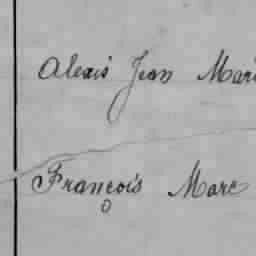 Alexis Jean Mari
François Marc